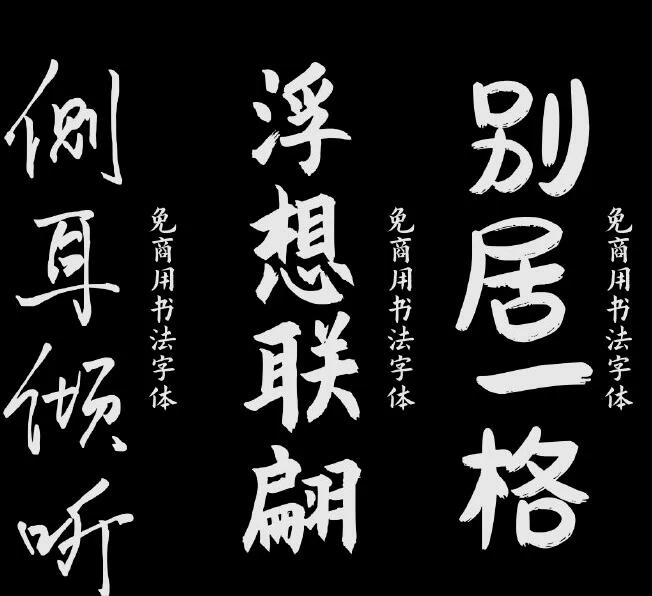 侧耳倾听
免商用书法字体
浮想联翩
免商用书法字体
别居一格
免商用书法字体